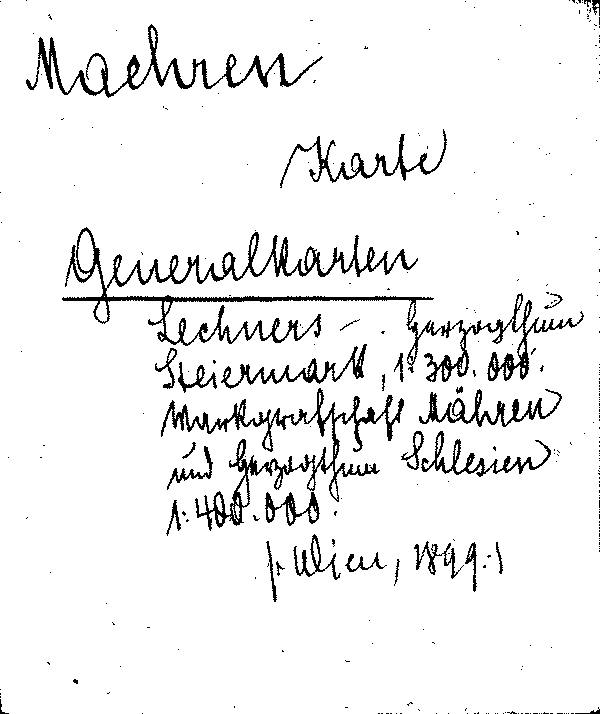 Maehren
Karte
Generalkarten
Lechners – . Herzogthum
Steiermark, 1:300.000.
Markgrafschaft Mähren
und Herzogthum Schlesien
1:400.000.
/: Wien, 1899:/